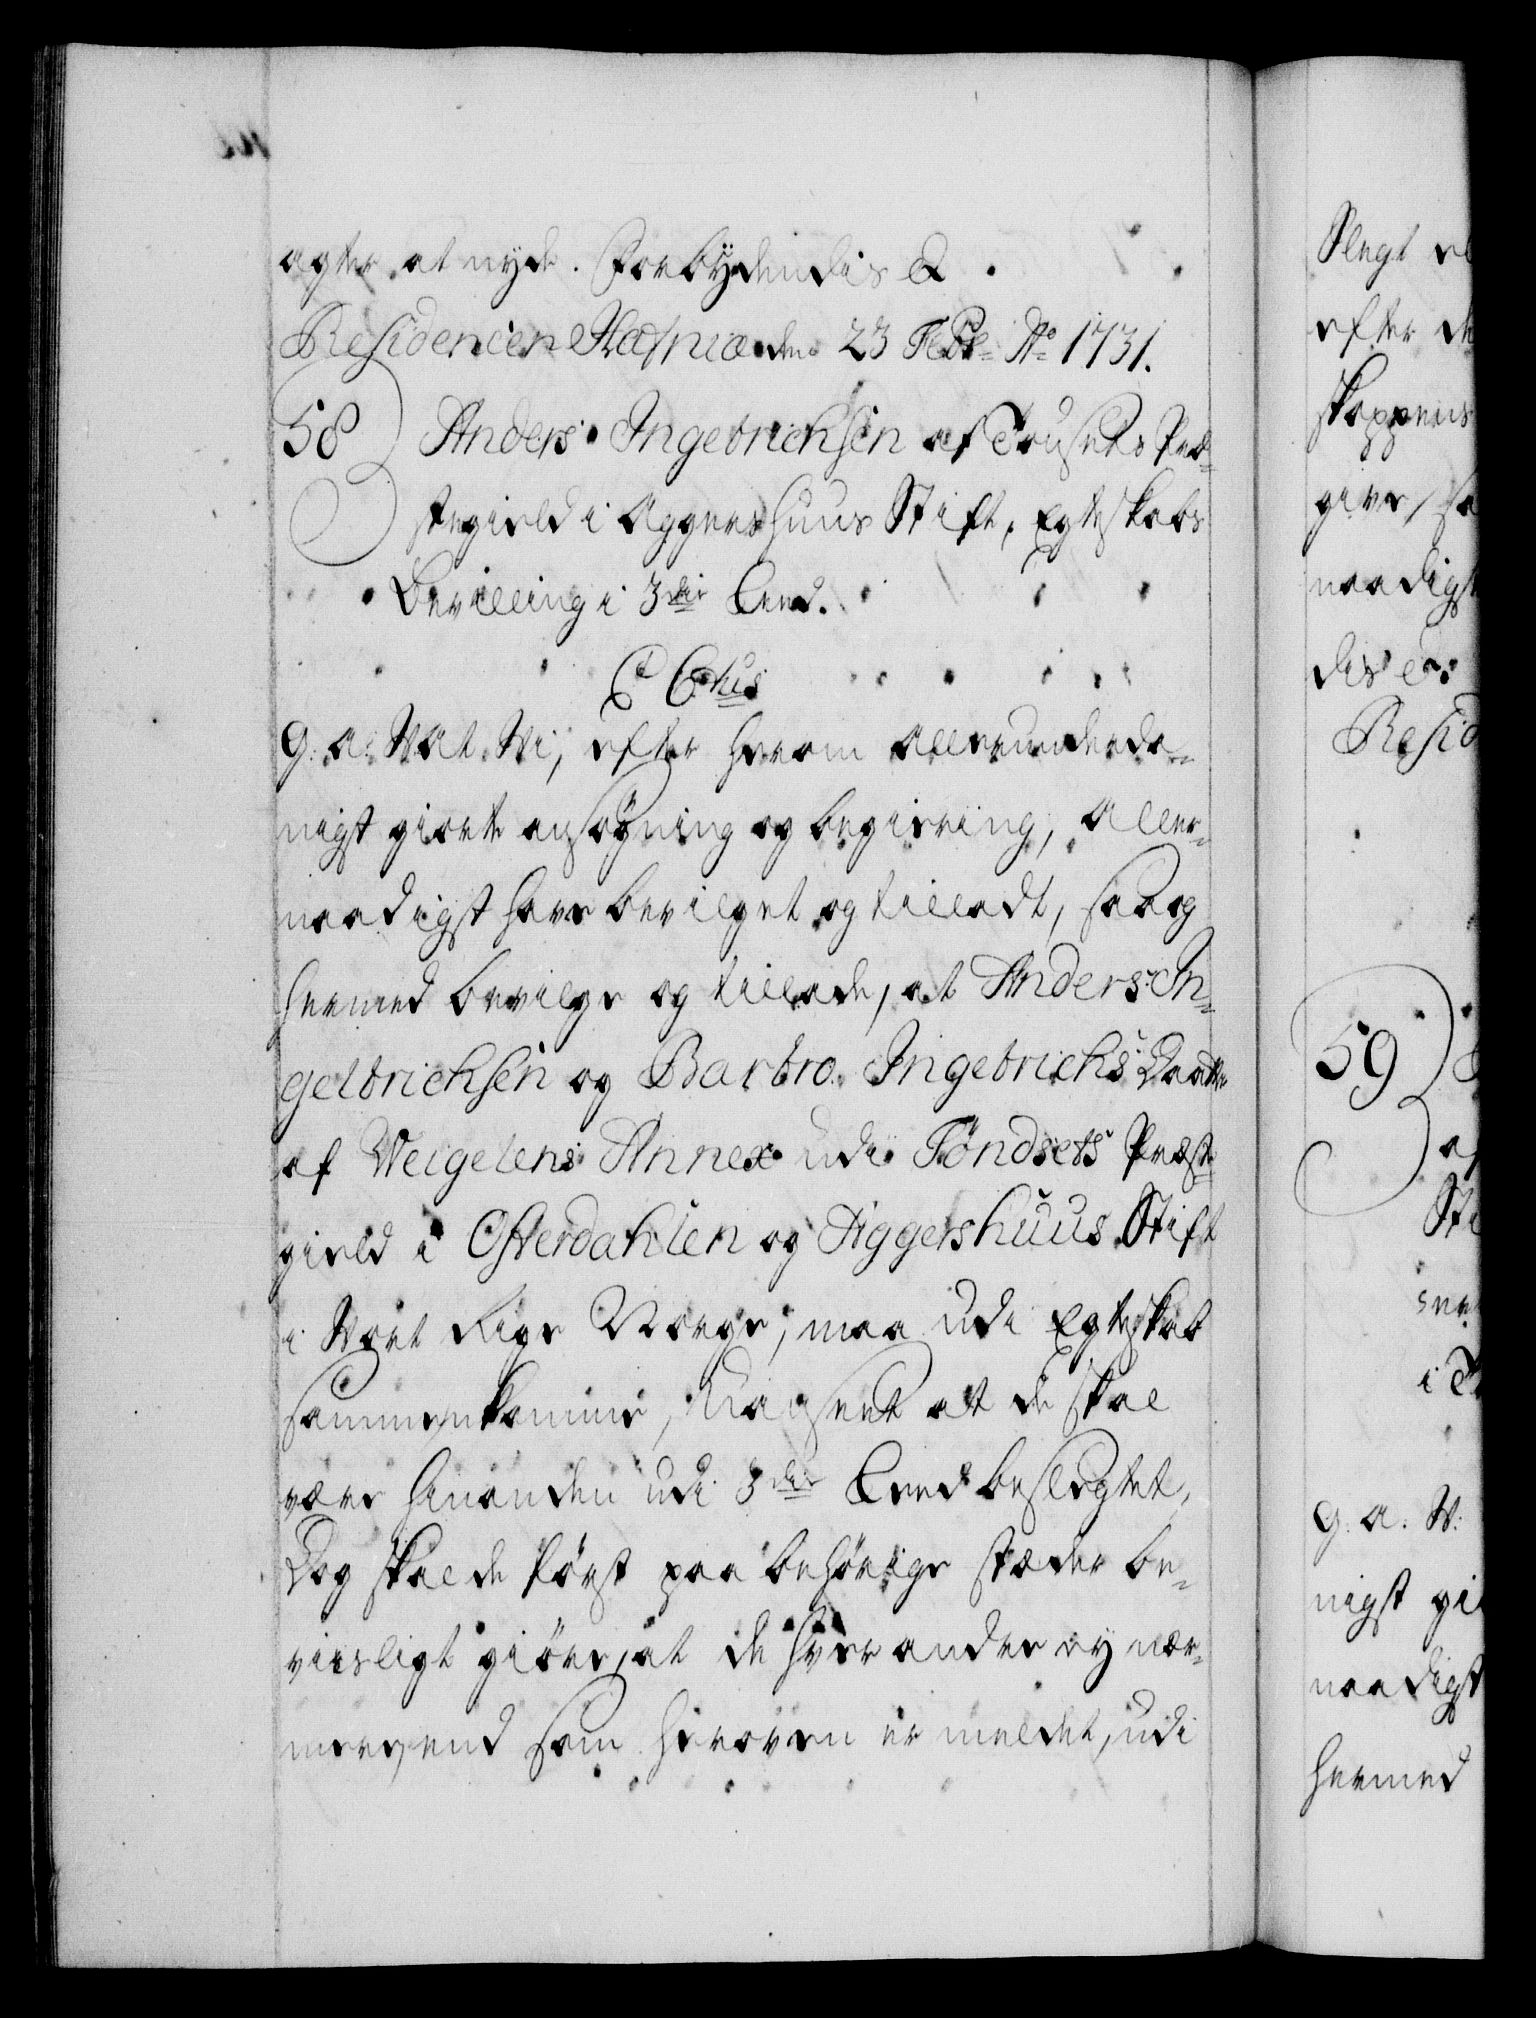 agter at nyde. Forbydendis &
Residencen Hafniæ den 23 Febr: Ao 1731.
58 Anders Ingebrichsen af Tønsets Præ-
stegield i Aggershuus Stift, Egteskabs
Bevilling i 3die Leed.
C 6tus
G: a: Vat. Vi, efter herom allerunderda-
nigst giorte ansøgning og begiering, Aller-
naadigst have bevilget og tilladt, saa og
hermed bevilge og tillade, at Anders In-
gelbrichsen og Barbro Ingebrichs Daatter
af Weigelens Annex udi Tøndsets Præste-
gield i Østerdahlen og Aggershuus Stift
i Vort Rige Norge, maa udi Egteskab
sammenkomme, Uagseet at de skal
være hinanden udi 3die Leed beslegtet,
Dog skal de først paa behørige stæder be-
viisligt giøre, at de hver andre ey nær-
mere, end som heroven er meldet, udi
Slegt
efter
skappens
give, sa
naadigst
dis &
Resid
59
af
Sti
i
G: a: V:
nigst gi
naadigst
hermed